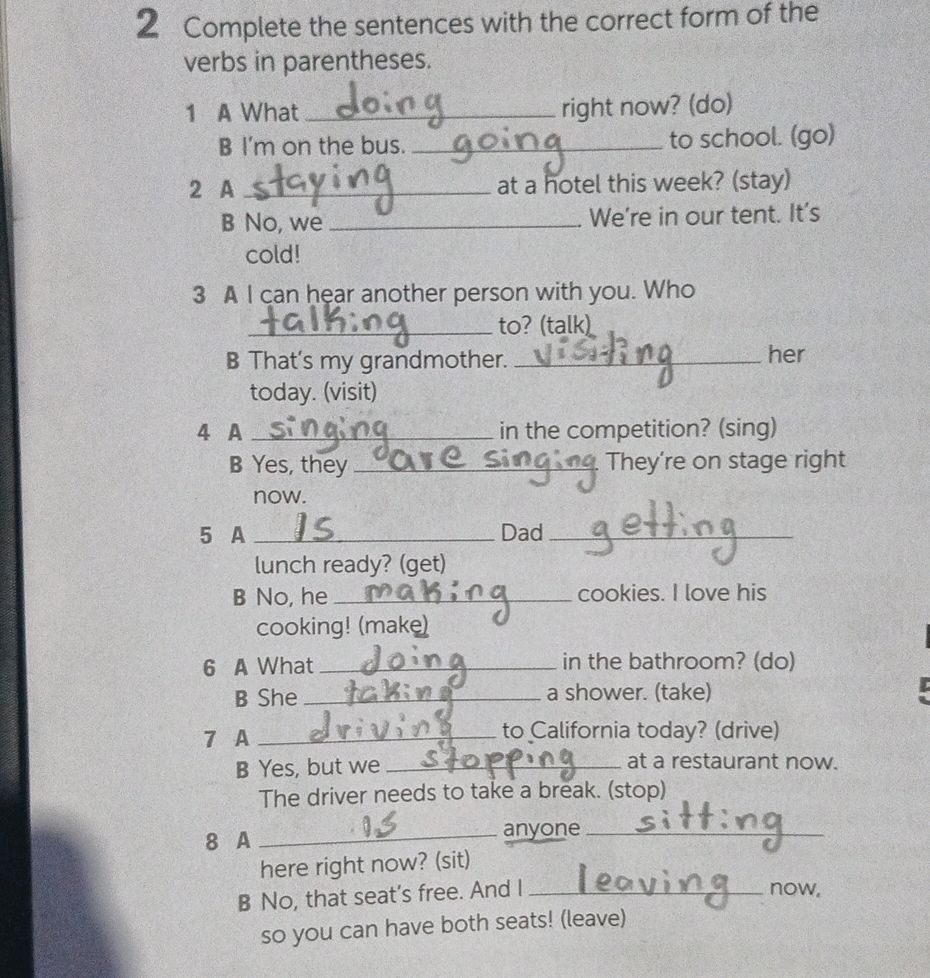 2 Complete the sentences with the correct form of the
verbs in parentheses.
1 A What doing right now? (do)
B I'm on the bus. going to school. (go)
2 A staying at a hotel this week? (stay)
B No, we ____. We're in our tent. It's
cold!
3 A I can hear another person with you. Who
talking to? (talk)
B That's my grandmother. visiting her
today. (visit)
4 A singing in the competition? (sing)
B Yes, they are singing. They're on stage right
now.
5 A Is Dad getting
lunch ready? (get)
B No, he making cookies. I love his
cooking! (make)
6 A What doing in the bathroom? (do)
B She taking a shower. (take)
7 A driving to California today? (drive)
B Yes, but we stopping at a restaurant now.
The driver needs to take a break. (stop)
8 A is anyone sitting
here right now? (sit)
B No, that seat's free. And I leaving now,
so you can have both seats! (leave)